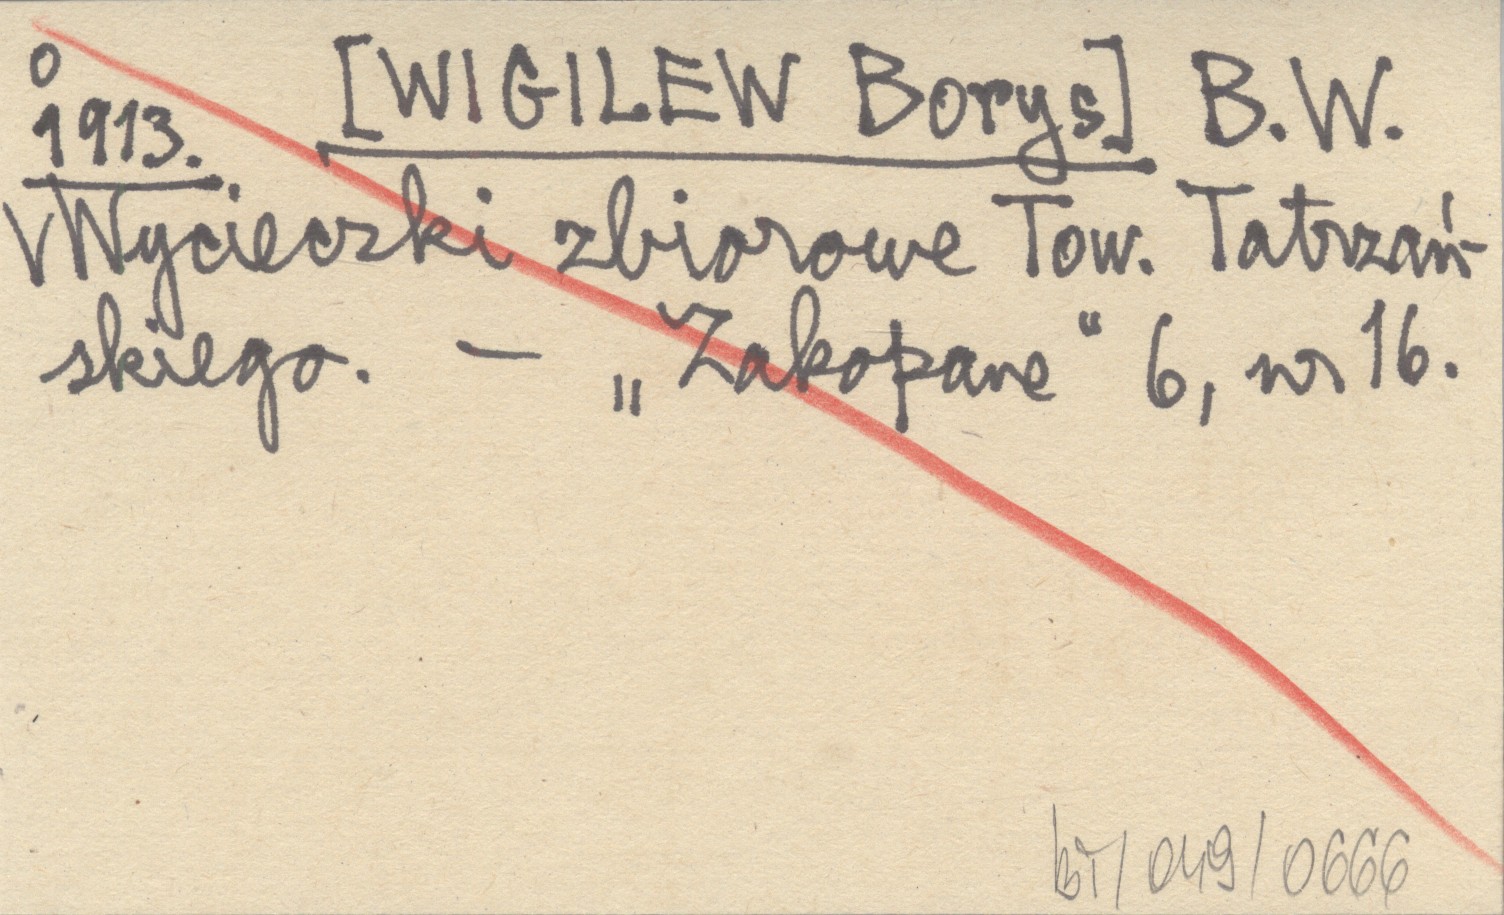 o
1913. [WIGILEW Borys] B.W.
√Wycieczki zbiorowe Tow. Tatrzań-
skiego. — „Zakopane“ 6, nr 16.
bT/049/0666